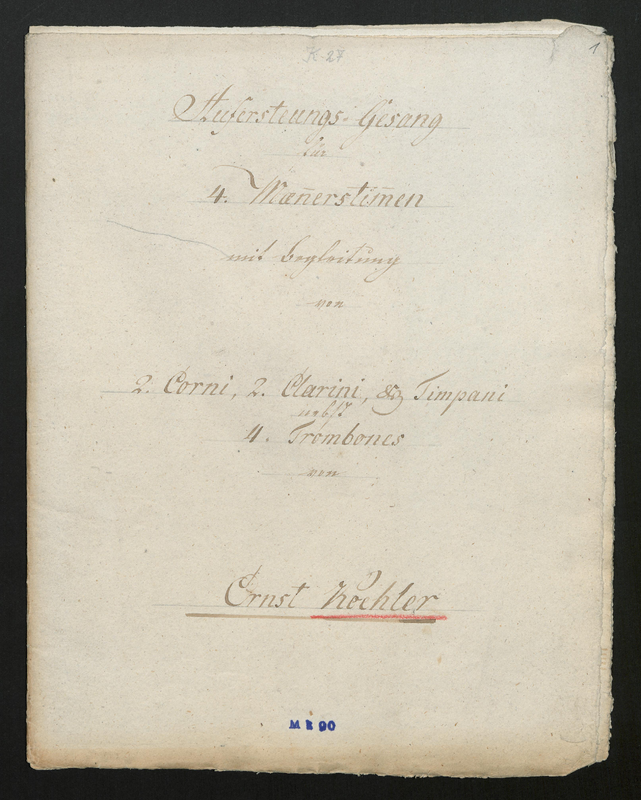 K-27
1
Aufersteungs-Gesang
für
4. Mæn̄erstim̄en
mit Begleitung
von
2. Corni, 2. Clarini, & Timpani
nebst
4. Trombones
von
Ernst Koehler
M E 90